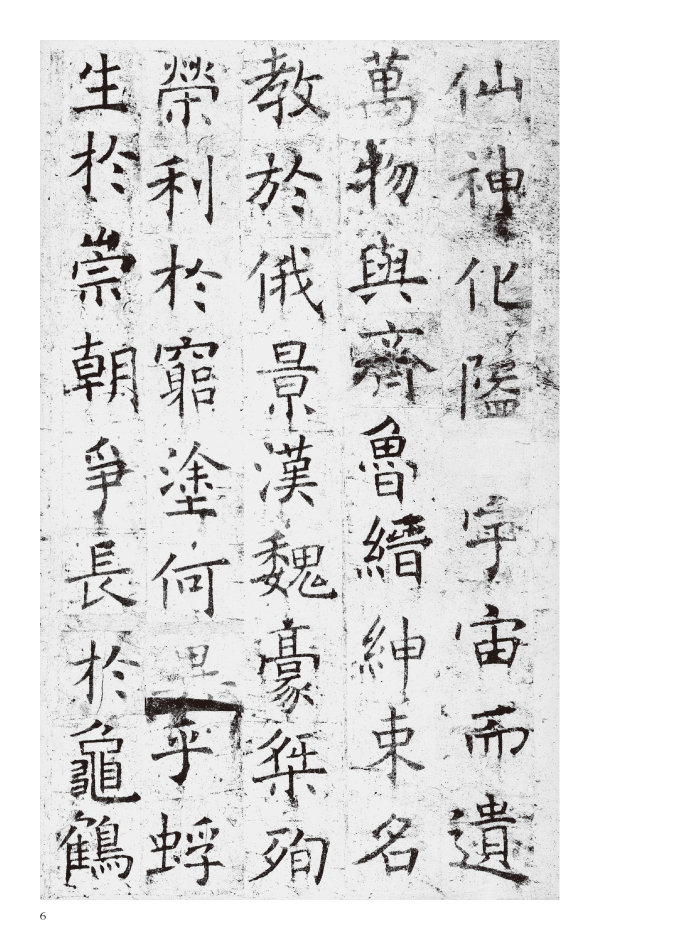 仙神化隘宇宙而遺
萬物與齊魯縉紳束名
教於俄景漢魏豪桀殉
榮利於窮塗何異乎蜉
生於崇朝爭長於龜鶴
6